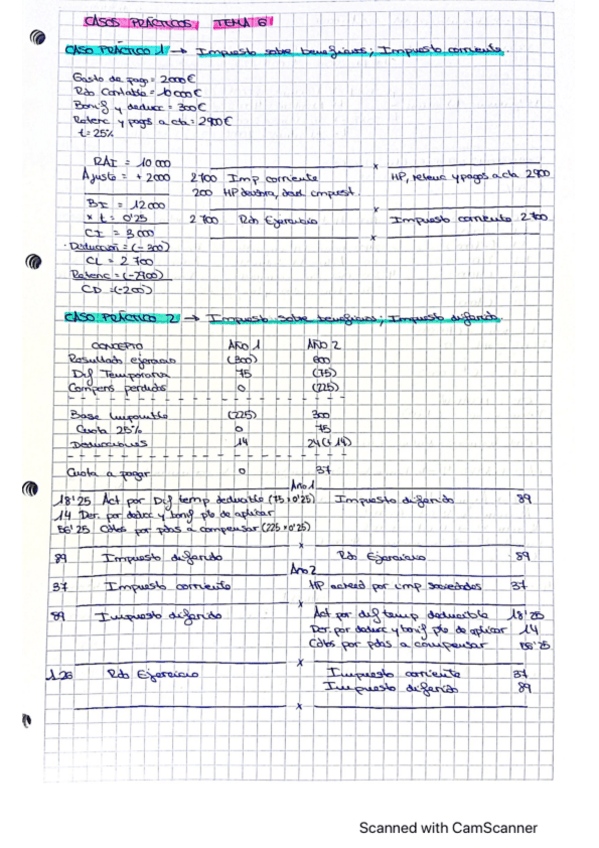 CASOS PRÁCTICOS TEMA 6
CASO PRÁCTICO 1 → Impuesto sobre beneficios; Impuesto corriente.
Gasto de pago = 2000€
Rdo Contable = 10 000€
Bonif y deducc = 300€
Retenc y pagos a cta: 2900€
t = 25%
RAI = 10 000
Ajuste = + 2000
BI = 12 000
x t = 0'25
CI = 3 000
- Deducción = (- 300)
CL = 2 700
Retenc = (-2900)
CD = (-200)
x
2 700 Imp corriente HP, retenc y pagos a cta 2900
200 HP deudora, devol impuest.
x
2 700 Rdo Ejercicio Impuesto corriente 2 700
x
CASO PRÁCTICO 2 → Impuesto sobre beneficios; Impuesto diferido.
CONCEPTO AÑO 1 AÑO 2
Resultado ejercicio (300) 600
Dif Temporaria 75 (75)
Compens pérdidas 0 (225)
Base Imponible (225) 300
Cuota 25% 0 75
Deducciones 14 24 (+ 14)
Cuota a pagar 0 37
Año 1
18'25 Act por Dif temp deducible (75 x 0'25) Impuesto diferido 89
14 Der. por deducc y bonif pte de aplicar
56'25 Cdtos por pdas a compensar (225 x 0'25)
x
89 Impuesto diferido Rdo Ejercicio 89
Año 2
37 Impuesto corriente HP acreed por imp sociedades 37
x
89 Impuesto diferido Act por dif temp deducible 18'25
Der. por deducc y bonif pte de aplicar 14
Cdtos por pdas a compensar 56'25
x
126 Rdo Ejercicio Impuesto corriente 37
Impuesto diferido 89
x
Scanned with CamScanner